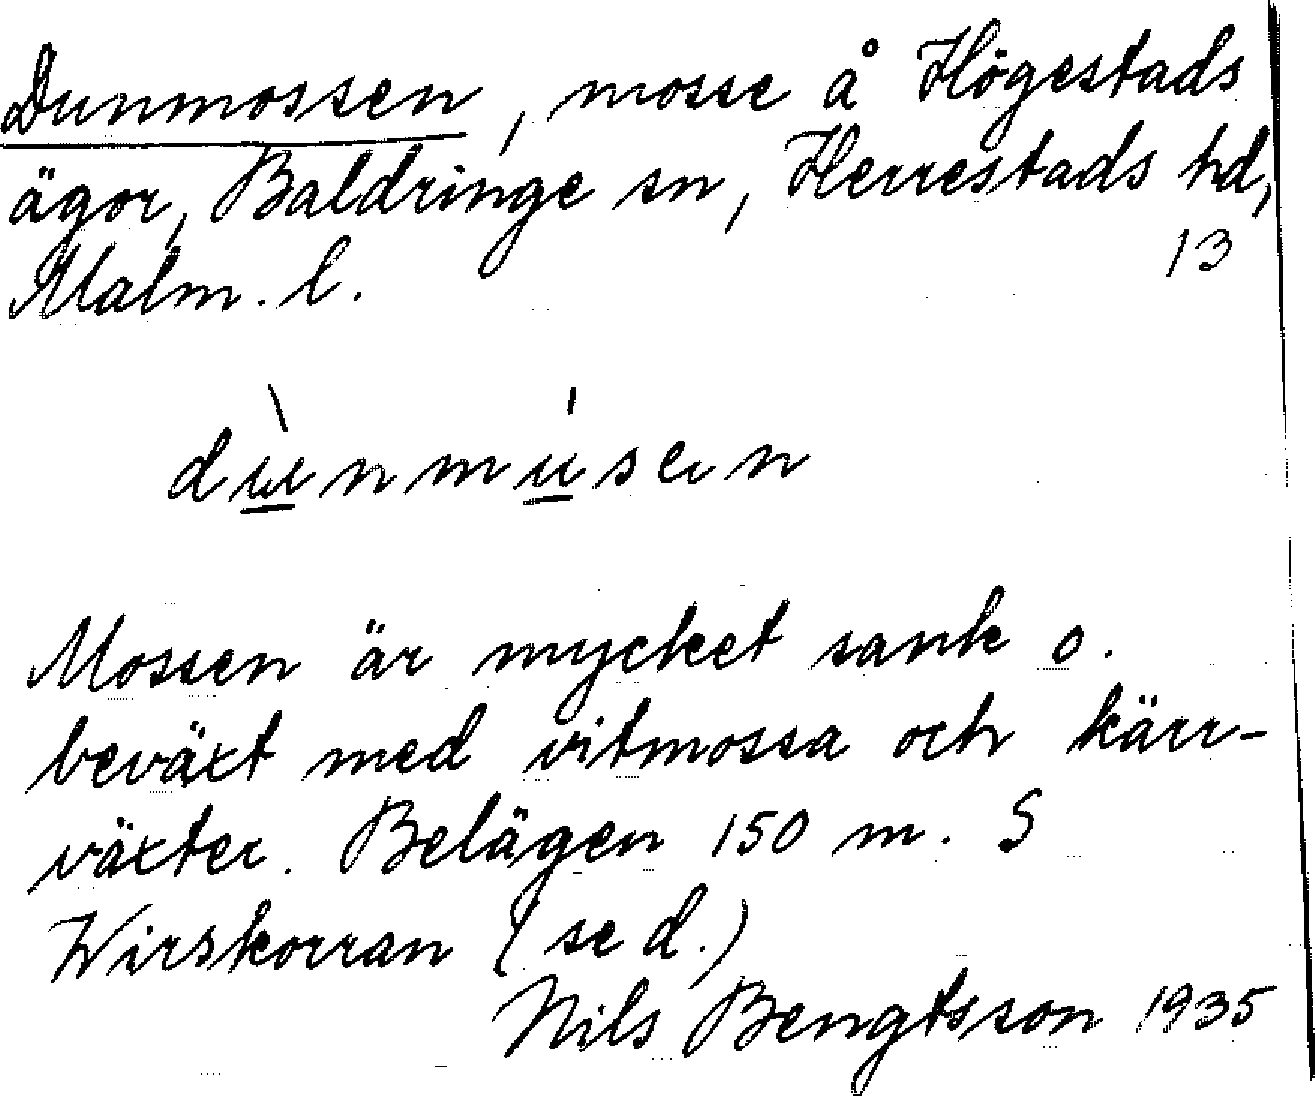 Dunmossen, mosse å Högestads
ägor, Baldringe sn, Herrestads hd,
Malm. l. 13
dùnmúsen
Mossen är mycket sank o.
beväxt med vitmossa och kärr-
växter. Belägen 150 m. S
Wirskorran (se d.)
Nils Bengtsson 1935